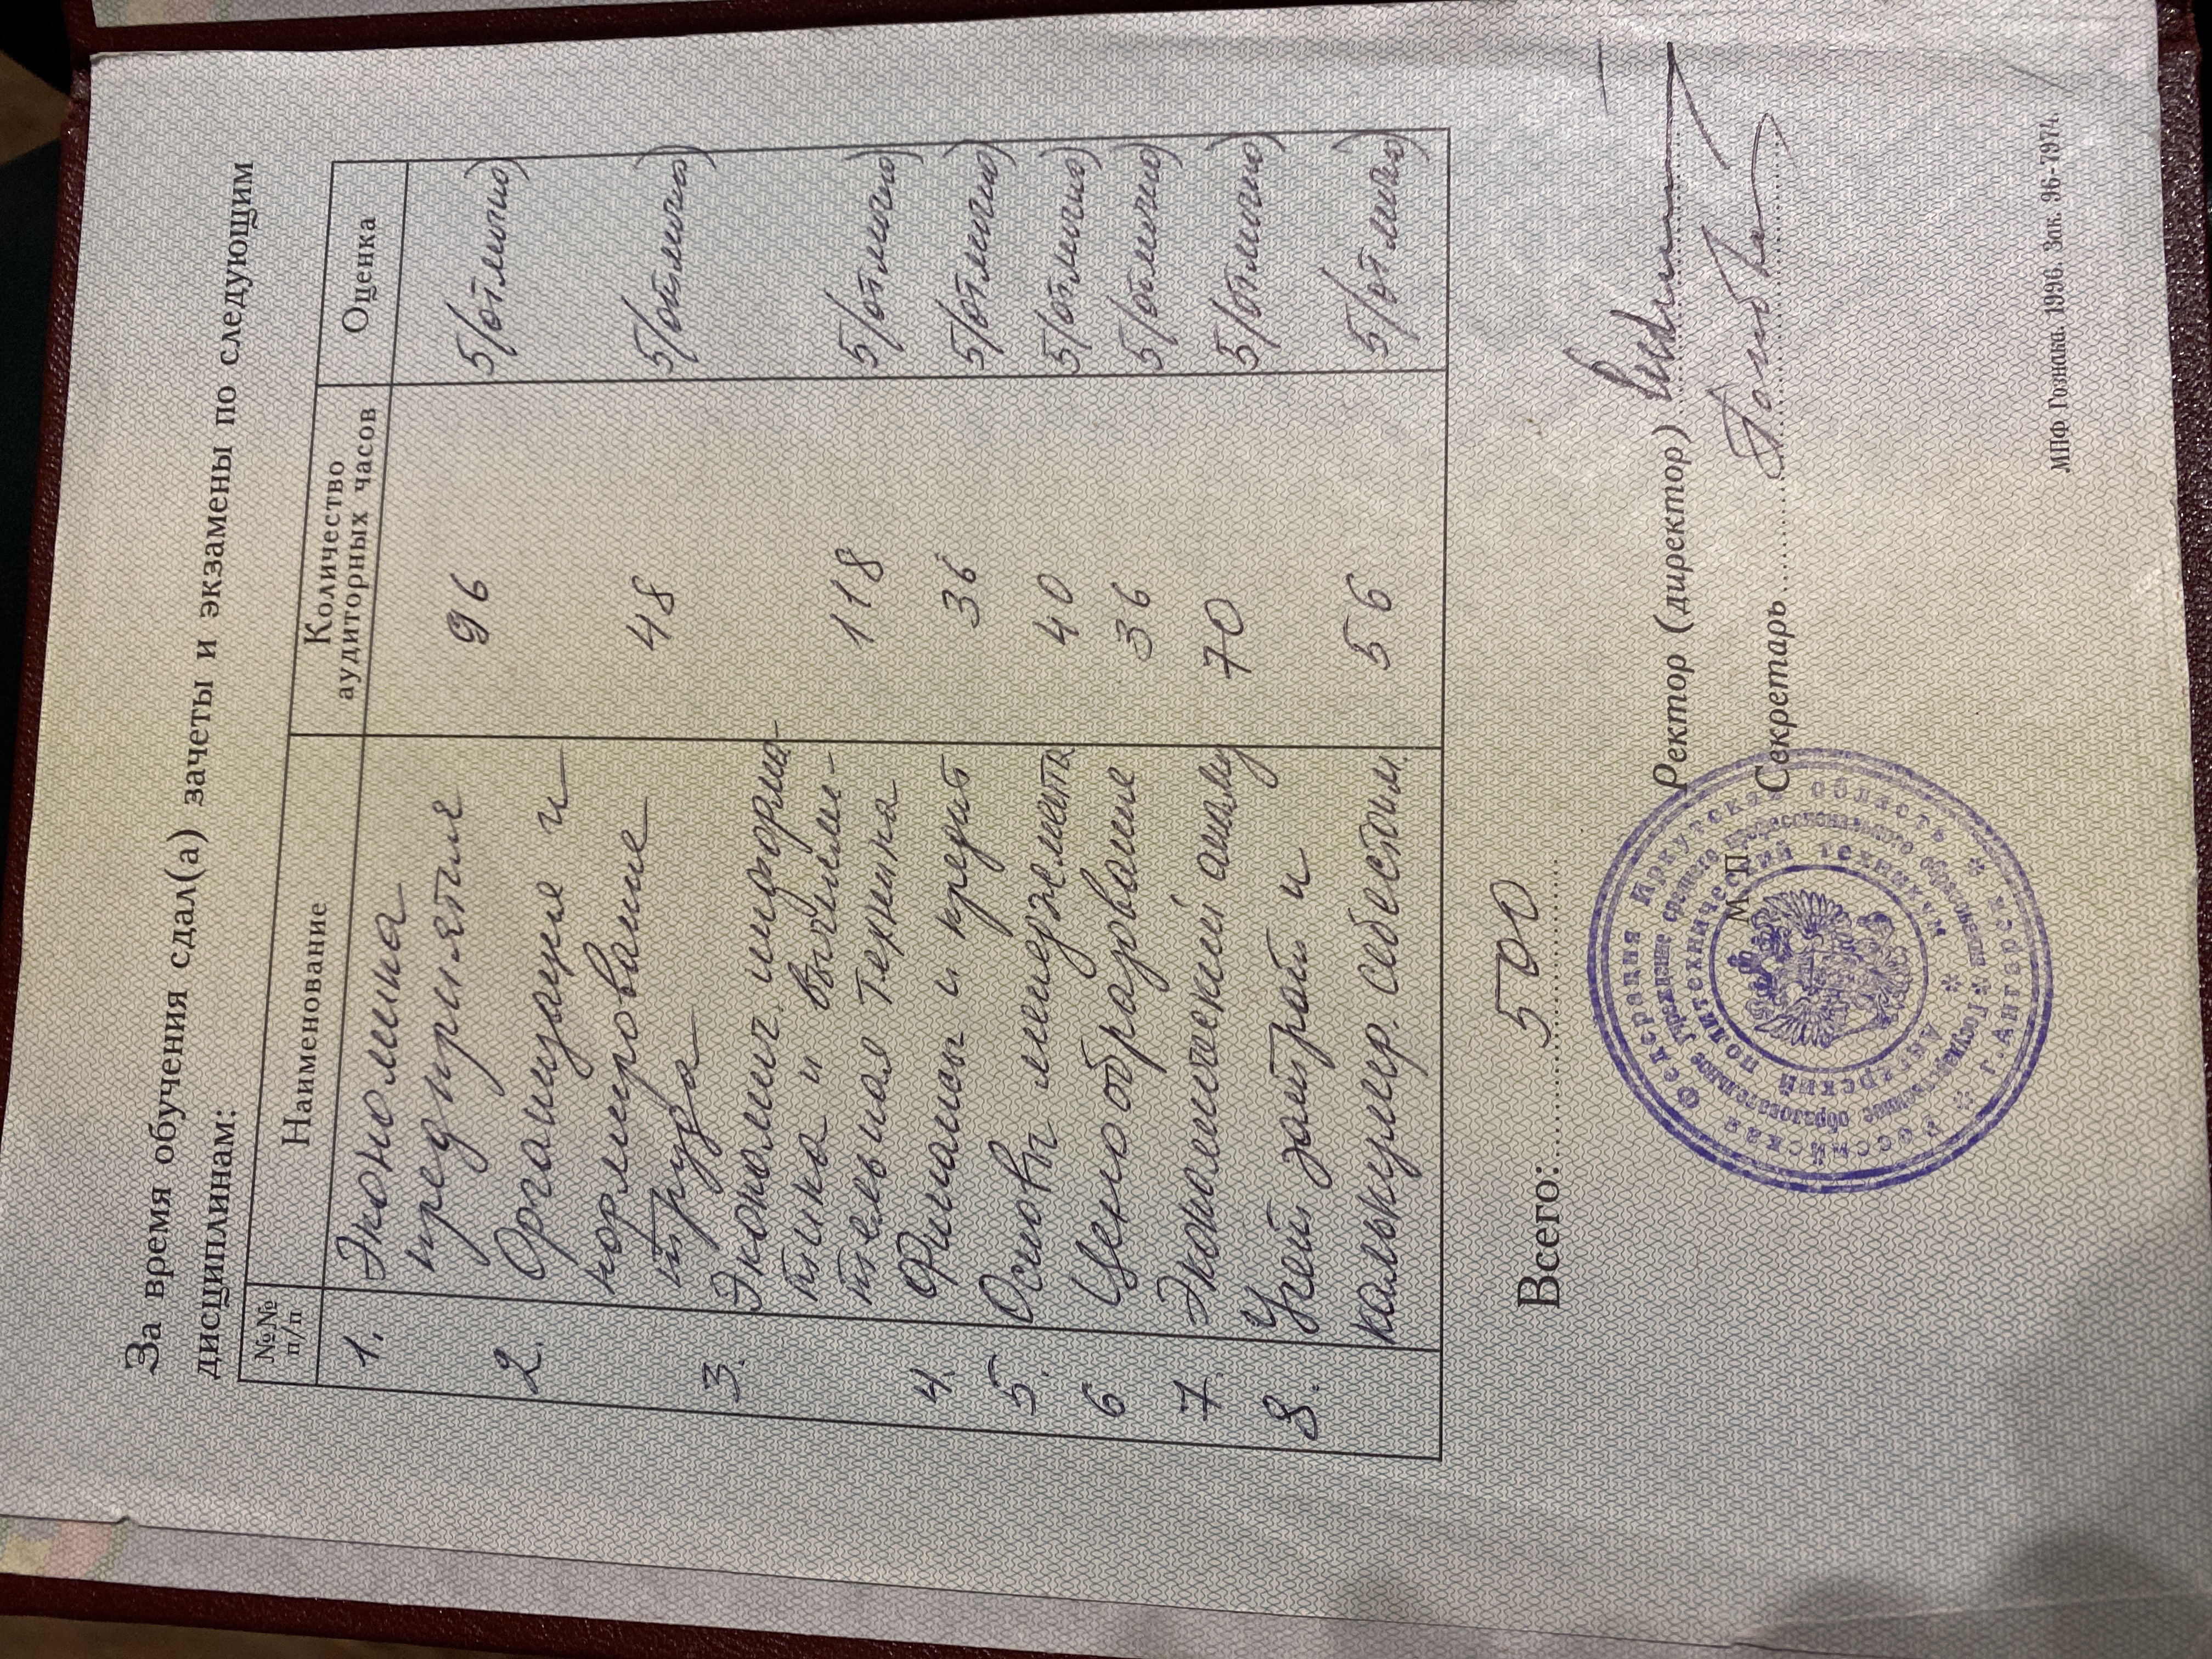 За время обучения сдал(а) зачеты и экзамены по следующим
дисциплинам:
№№ п/п
Наименование
Количество аудиторных часов
Оценка
1. Экономика
предприятия 96 5/отлично)
2. Организация и
нормирование 48 5/отлично)
труда
3. Экономич. информа-
тика и вычисли-
тельная техника 118 5/отлично)
4. Финансы и кредит 36 5/отлично)
5. Основы менеджмента 40 5/отлично)
6 Ценообразование 36 5/отлично)
7. Экономический анализ 70 5/отлично)
8. Учет затрат и
калькулир. себестоим. 56 5/отлично)
Всего: 500
Ректор (директор)
М. П.
Секретарь
Российская Федерация Иркутская область
г. Ангарск
Государственное образовательное учреждение среднего профессионального образования
Ангарский политехнический техникум
МПФ Гознака. 1996. Зак. 96-7974.